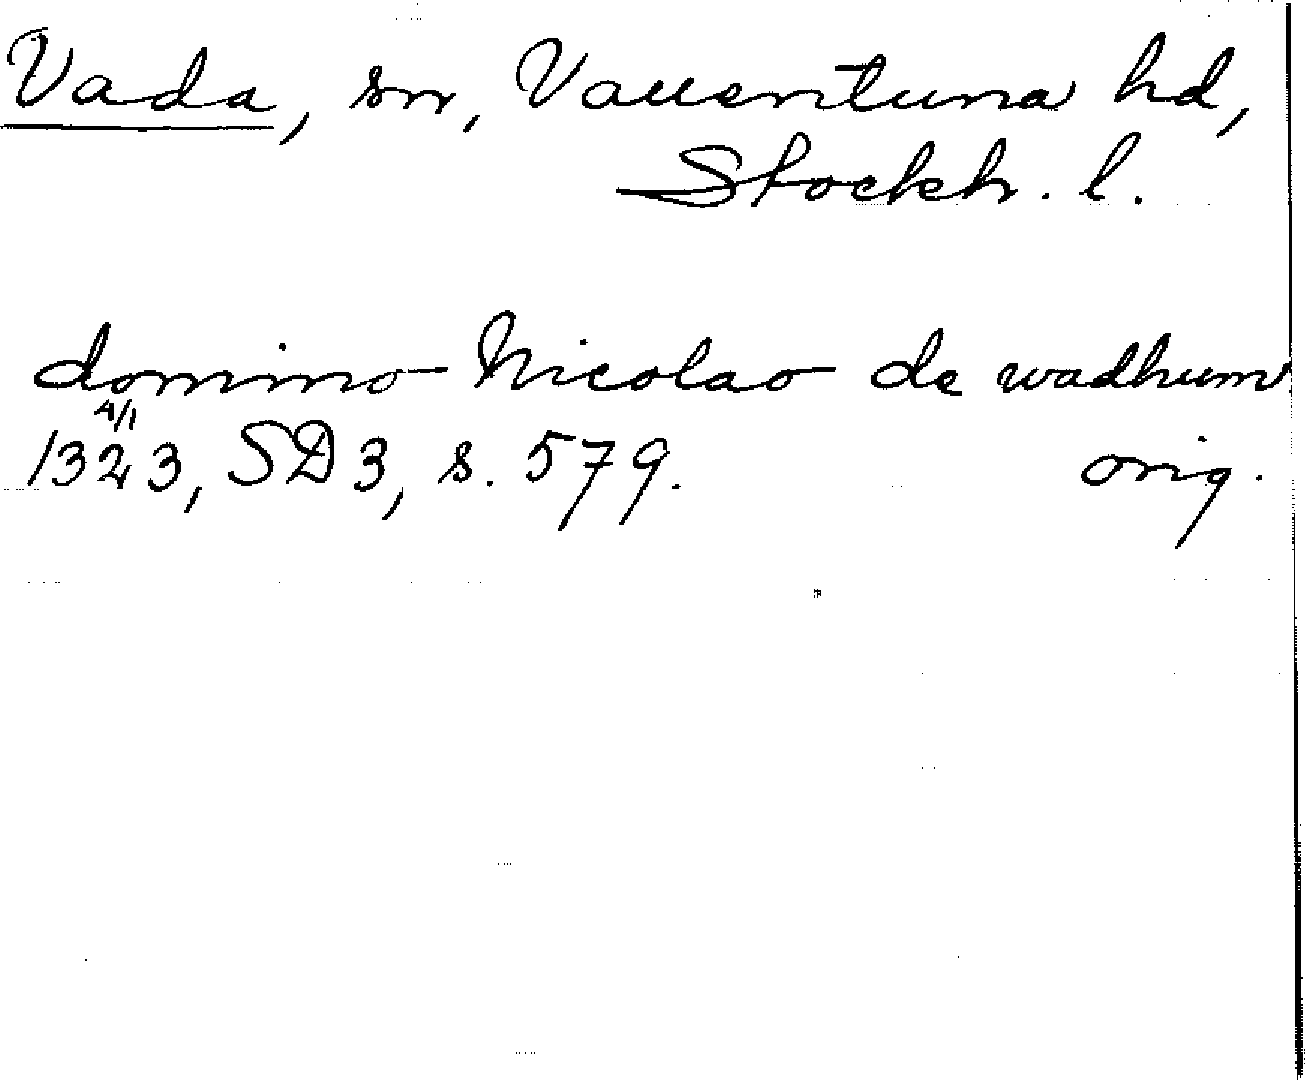 Vada, sn, Vallentuna hd,
Stockh. l.
domino Nicolao de wadhum
4/1
1323, SD 3, s. 579. orig.